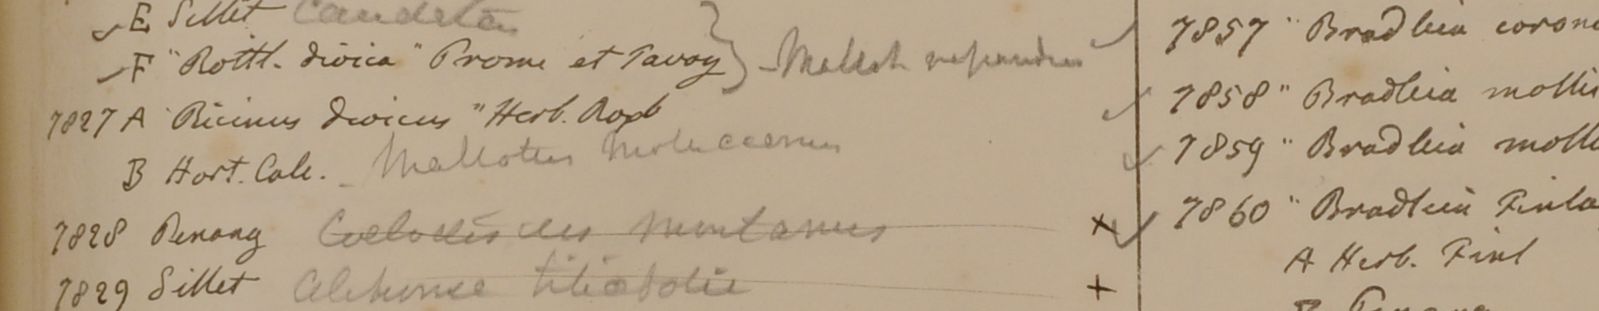 E Sillet
F "Rottl. dioica" Prome et Tavoy
7827 A "Ricinus dioicus" Herb. Roxb
B Hort. Calc. - Mallotus moluccanus
7828 Penang montanus +
7829 Sillet tiliaefolia +
7857 " Bradleia coron
7858 " Bradleia molli
7859 " Bradleia moll
7860 " Bradleia Finla
A Herb. Finl